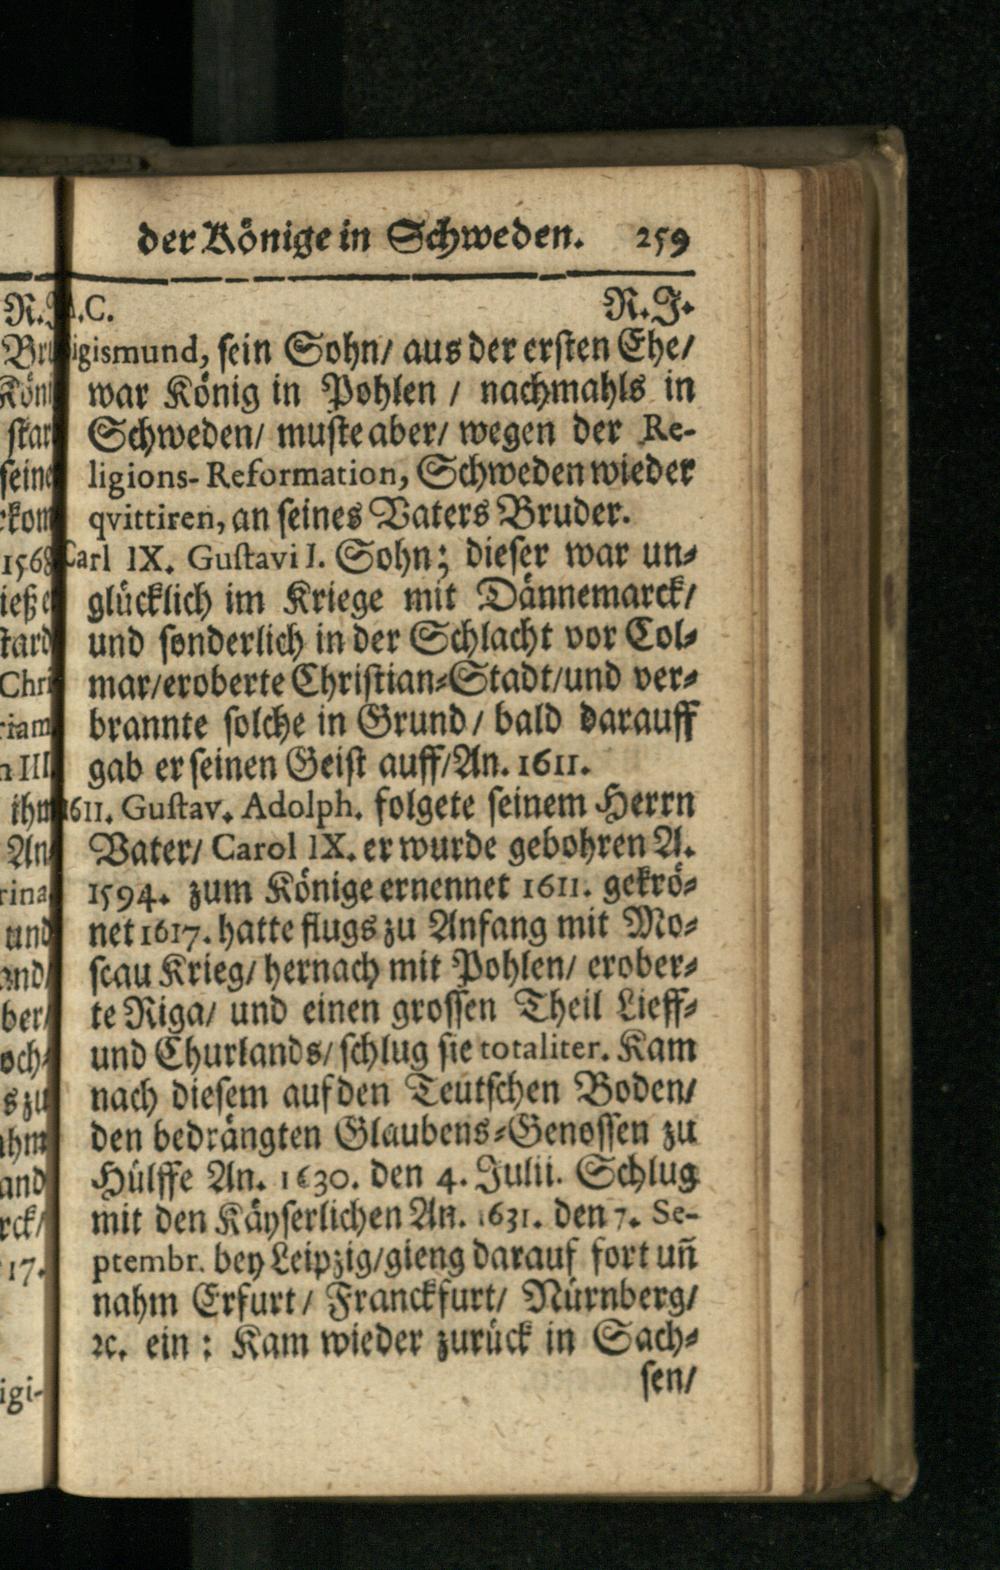 der Könige in Schweden. 259
A.C. R.J.
Sigismund, sein Sohn/ aus der ersten Ehe/
war König in Pohlen / nachmahls in
Schweden/ muste aber/ wegen der Re-
ligions-Reformation, Schweden wieder
qvittiren, an seines Vaters Bruder.
Carl IX. Gustavi I. Sohn; dieser war un-
glücklich im Kriege mit Dännemarck/
und sonderlich in der Schlacht vor Col-
mar/eroberte Christian-Stadt/und ver-
brannte solche in Grund/ bald darauff
gab er seinen Geist auff/An. 1611.
1611. Gustav. Adolph. folgete seinem Herrn
Vater/ Carol IX. er wurde gebohren A.
1594. zum Könige ernennet 1611. gekrö-
net 1617. hatte flugs zu Anfang mit Mo-
scau Krieg/ hernach mit Pohlen/ erober-
te Riga/ und einen grossen Theil Lieff-
und Churlands/ schlug sie totaliter. Kam
nach diesem auf den Teutschen Boden/
den bedrängten Glaubens-Genossen zu
Hülffe An. 1630. den 4. Julii. Schlug
mit den Käyserlichen An. 1631. den 7. Se-
ptembr. bey Leipzig/gieng darauf fort uñ
nahm Erfurt/ Franckfurt/ Nürnberg/
ꝛc. ein : Kam wieder zurück in Sach-
sen/